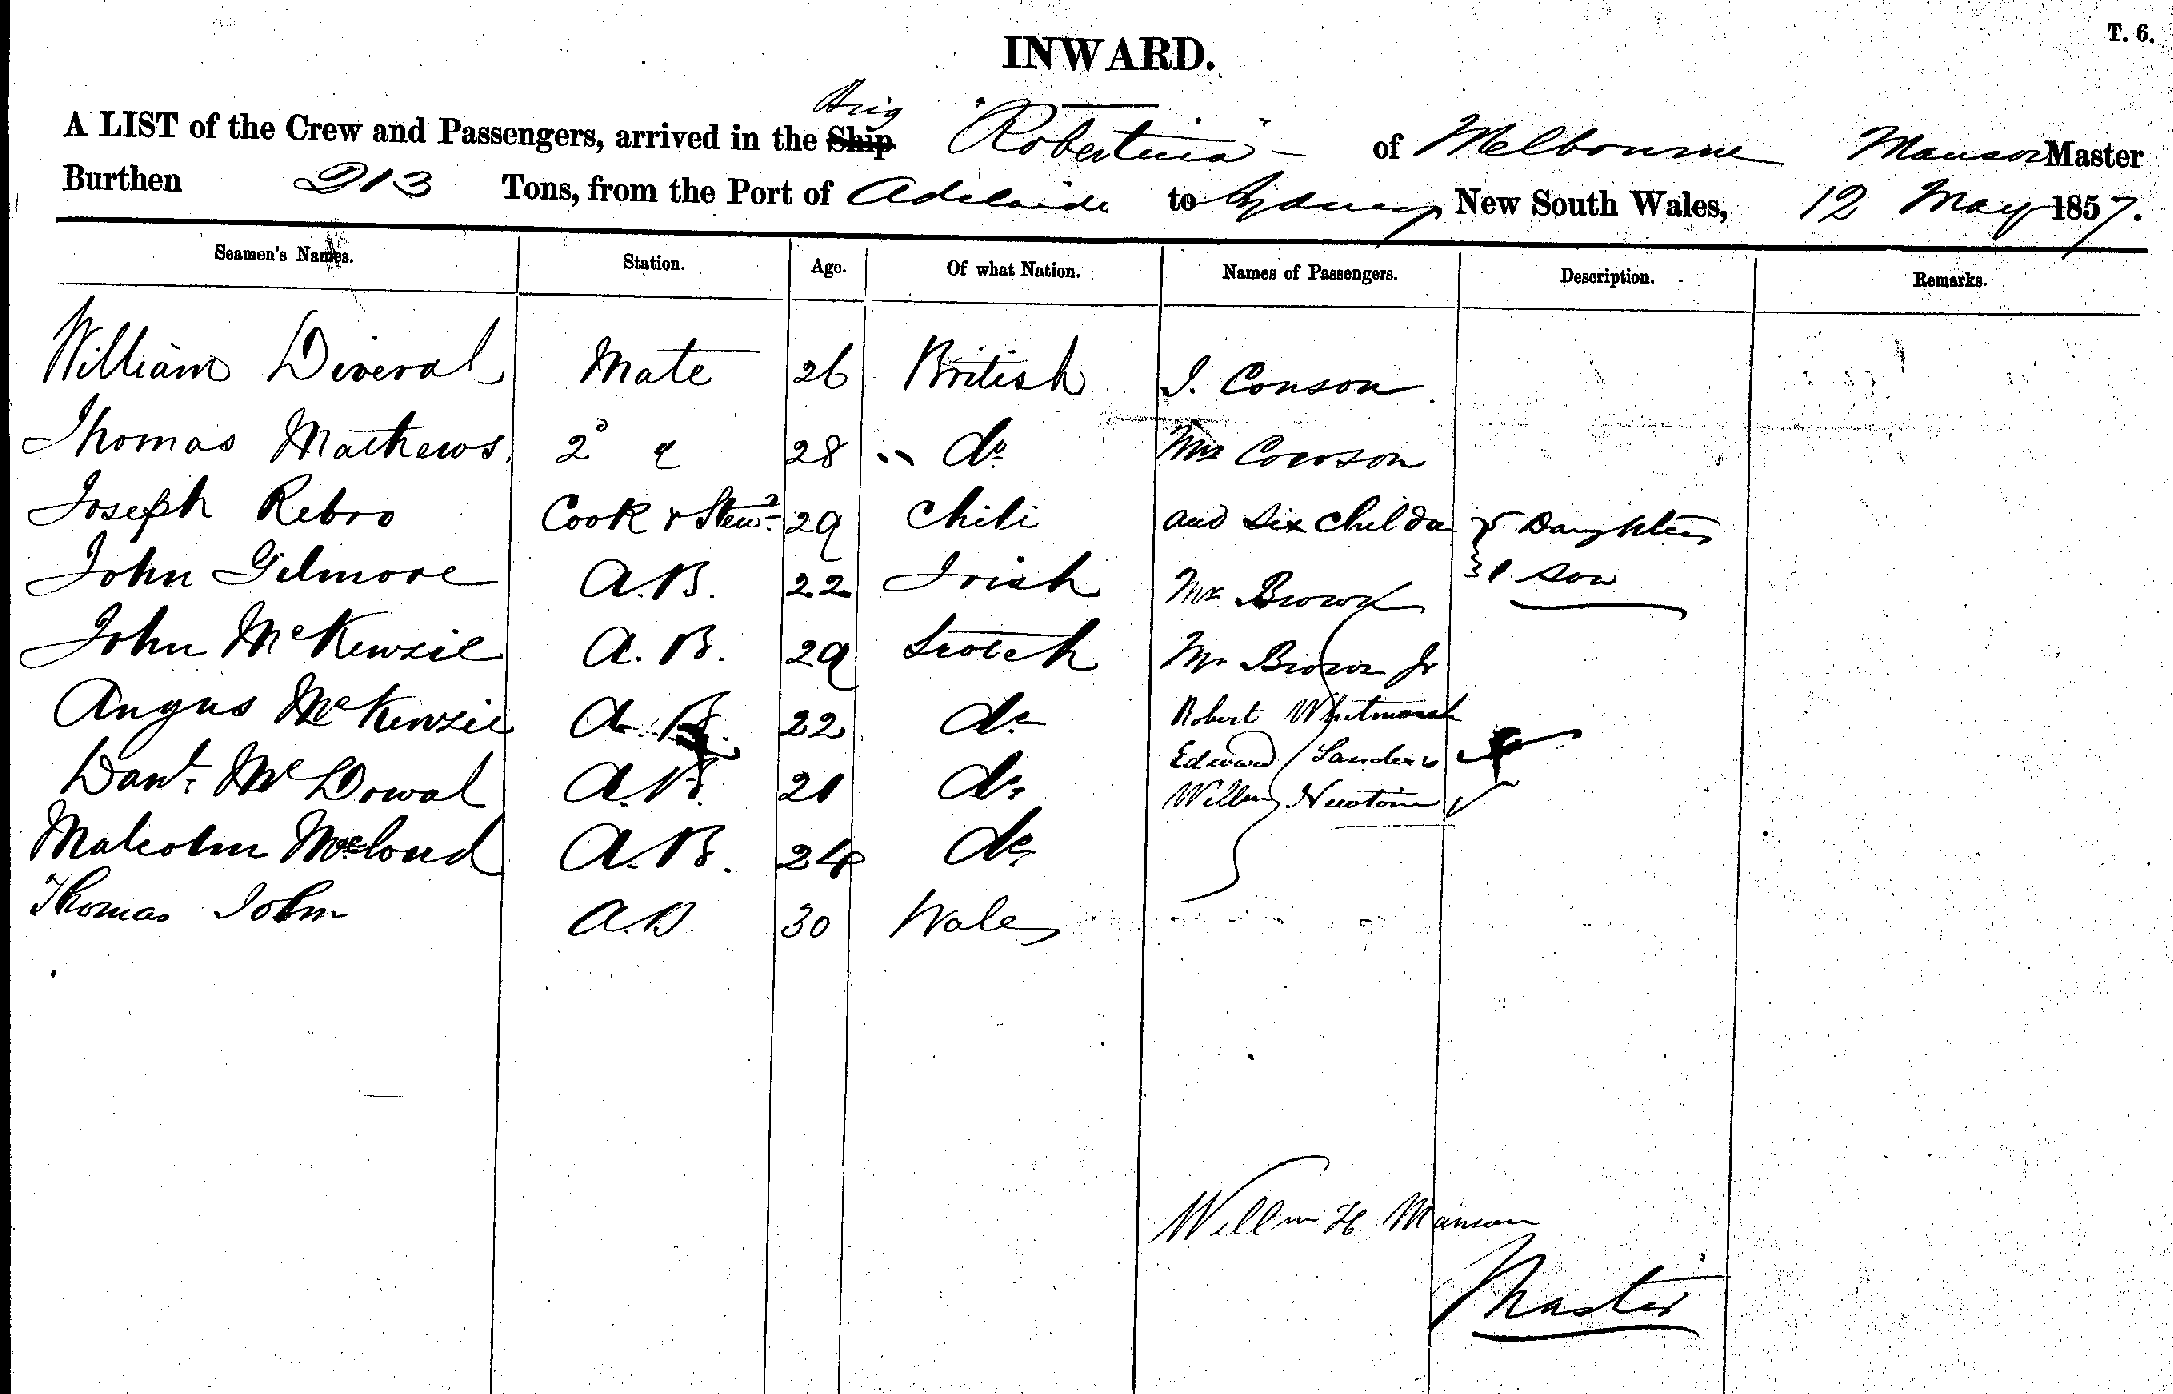 T. 6.
INWARD.
Brig
A LIST of the Crew and Passengers, arrived in the Ship "Robertina" of Melbourne Manson Master
Burthen 213 Tons, from the Port of Adelaide to Sydney New South Wales, 12 May 1857.
Seamen's Names. Station. Age. Of what Nation. Names of Passengers. Description. Remarks.
William Diveral Mate 26 British J. Conson
Thomas Mathews 2d " 28 " do Mrs Conson
Joseph Rebro Cook & Stewd 29 Chili and six childn 5 Daughters
John Gilmore A.B. 22 Irish Mr Brown 1 son
John McKenzie A.B. 29 Scotch Mr Brown Jr
Angus McKenzie A.B. 22 do Robert Whitmarsh
Danl. McDowal A.B. 21 do Edward Sanders
Willm Newton
Malcolm Mccloud A.B. 24 do
Thomas John A.B 30 Wales
Willm H Manson
Master